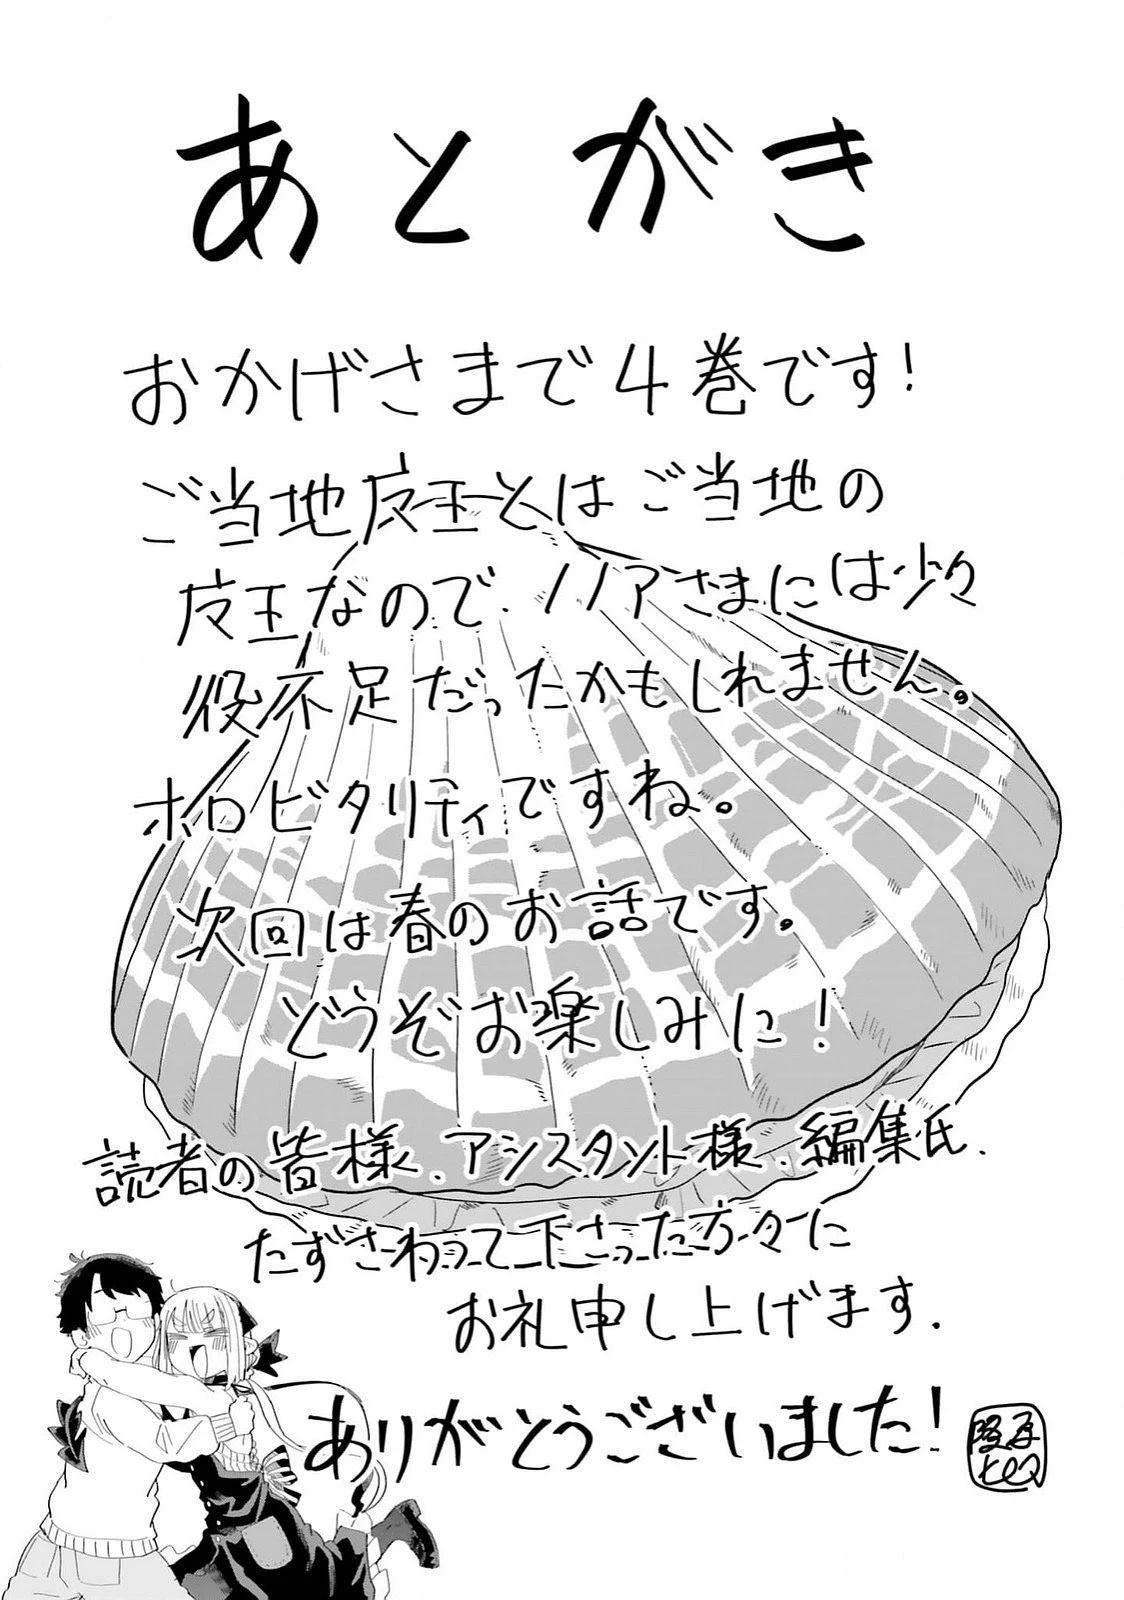 あとがき
おかげさまで4巻です!
ご当地魔王とはご当地の
魔王なので、ノノアさまには少々
役不足だったかもしれません。
ホロビタリティですね。
次回は春のお話です。
どうぞお楽しみに!
読者の皆様、アシスタント様、編集氏、
たずさわって下さった方々に
お礼申し上げます.
ありがとうございました!